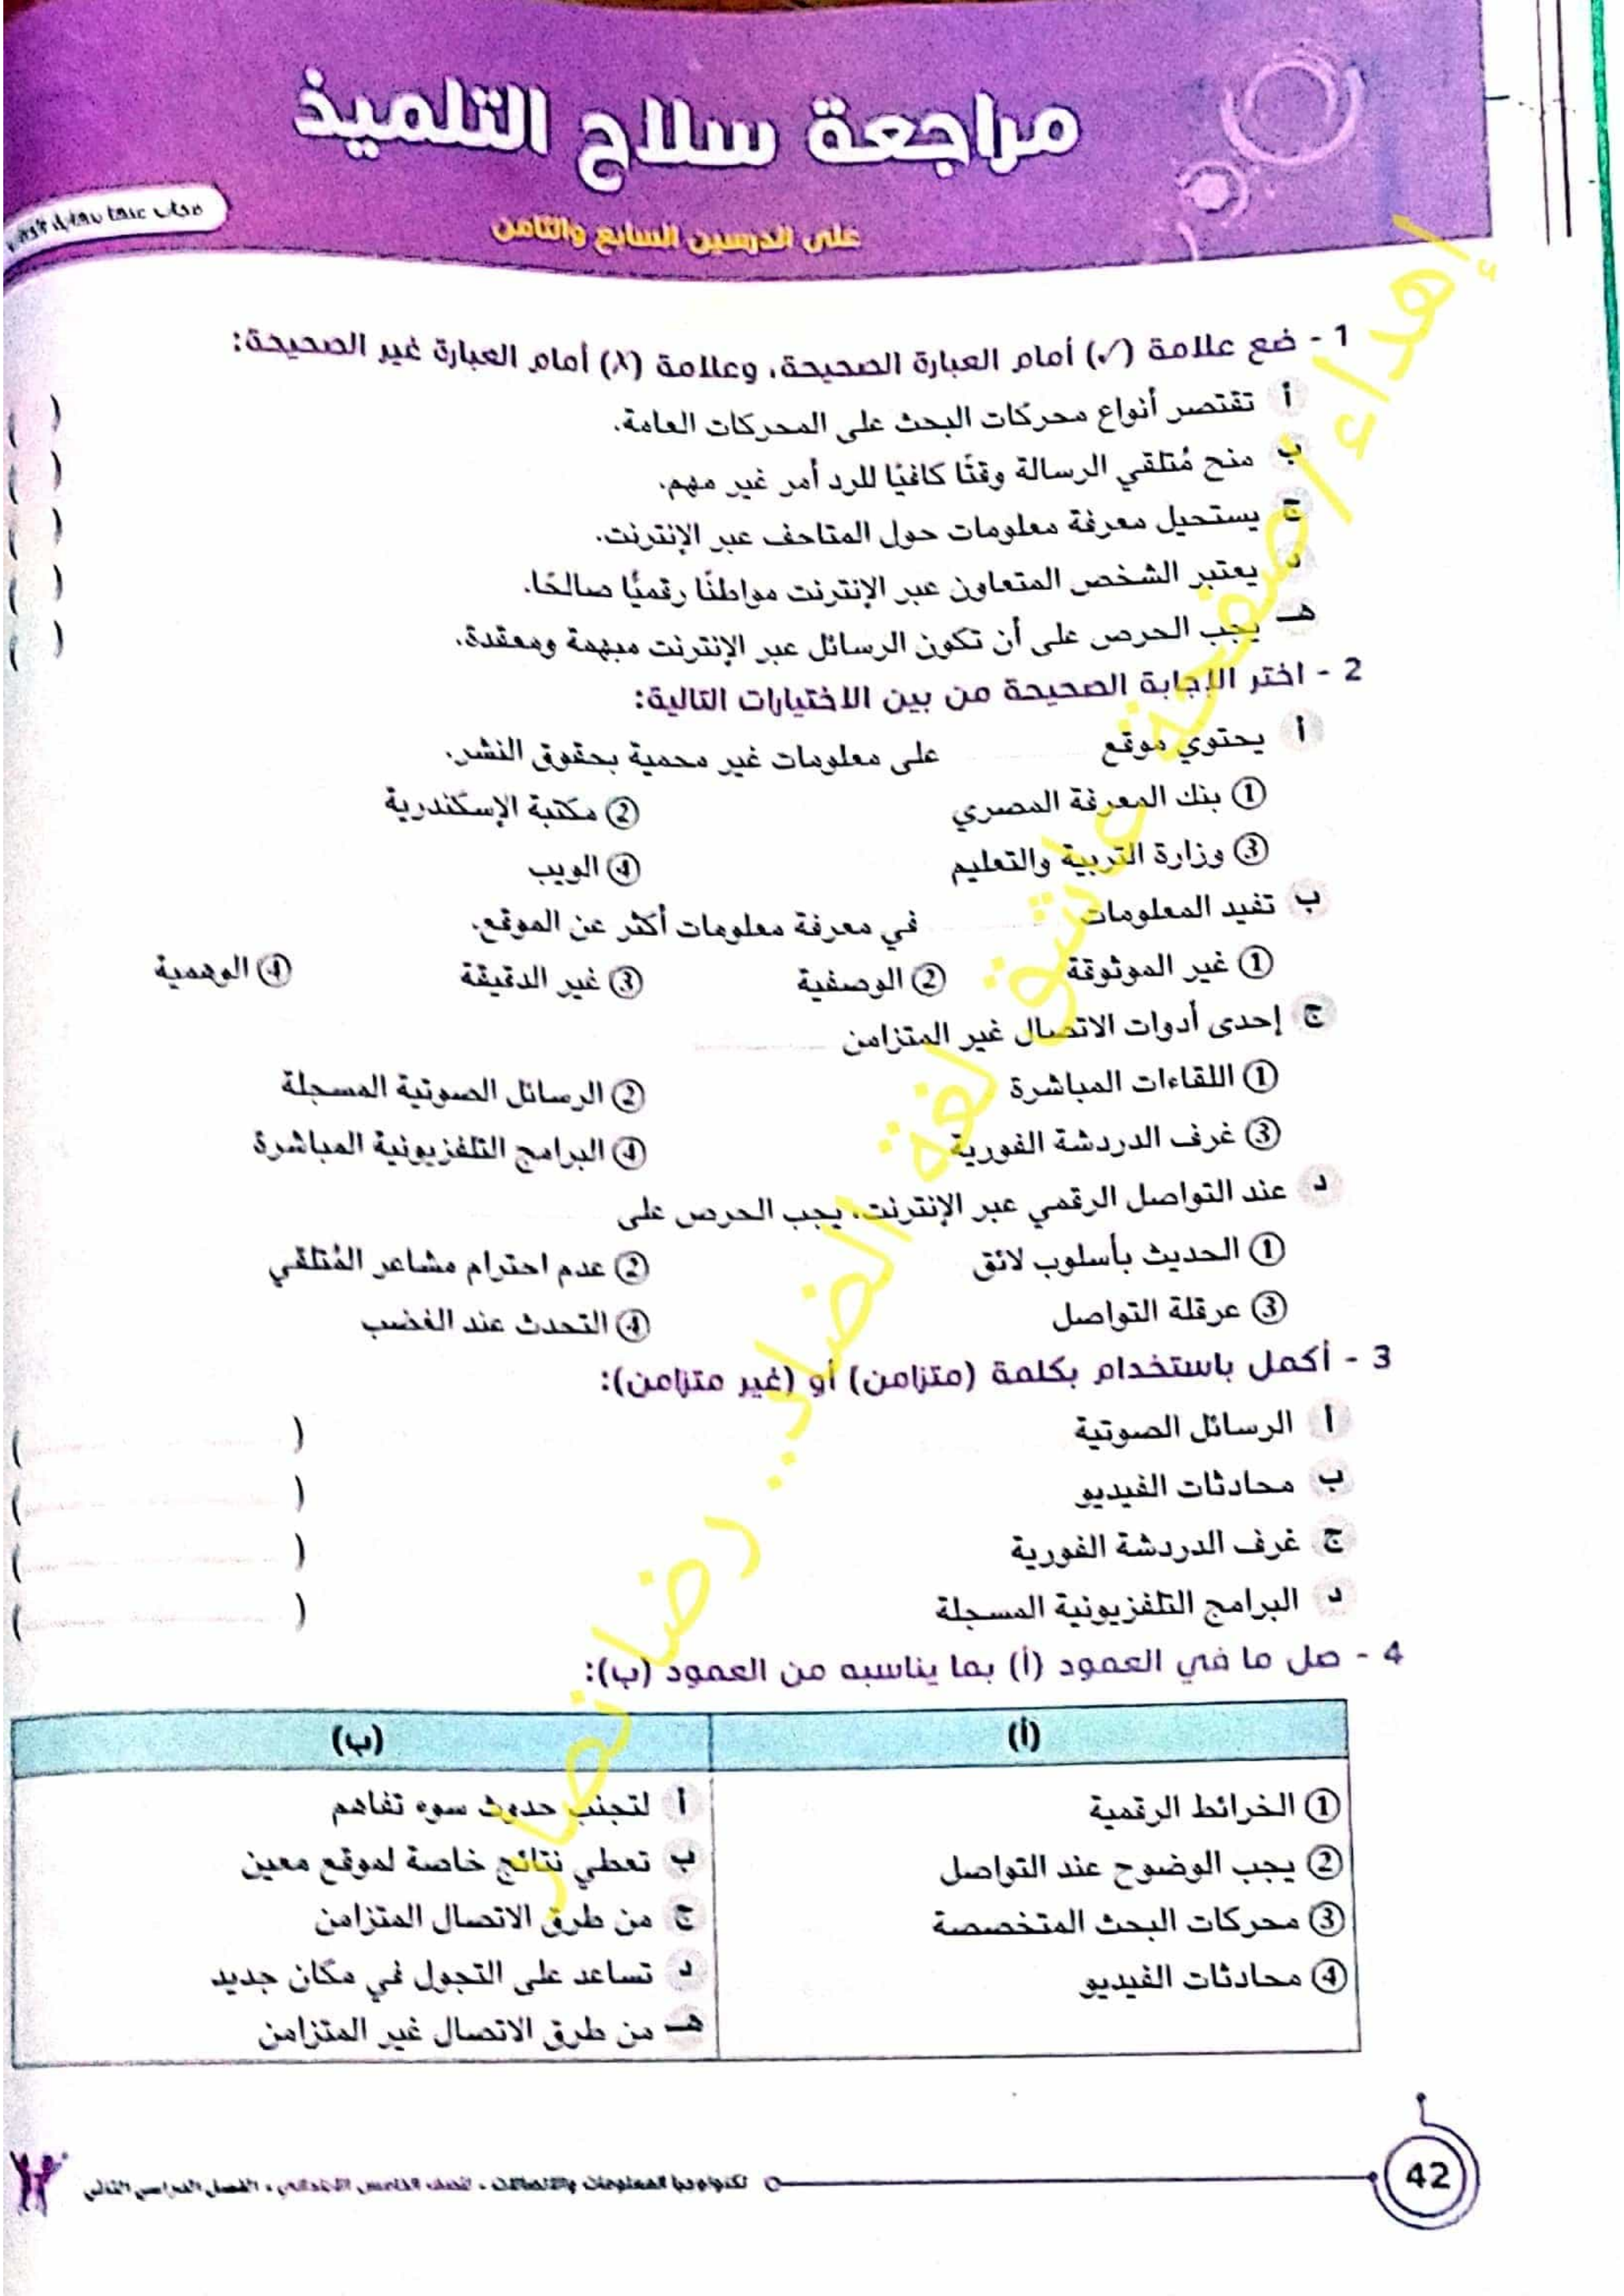 مراجعة سلاح التلميذ
على الدرسين السابع والثامن
مجاب عنها بنهاية
1 - ضع علامة (✓) أمام العبارة الصحيحة، وعلامة (X) أمام العبارة غير الصحيحة:
أ تقتصر أنواع محركات البحث على المحركات العامة. ( )
ب منح مُتلقي الرسالة وقتًا كافيًا للرد أمر غير مهم. ( )
ج يستحيل معرفة معلومات حول المتاحف عبر الإنترنت. ( )
د يعتبر الشخص المتعاون عبر الإنترنت مواطنًا رقميًا صالحًا. ( )
هـ يجب الحرص على أن تكون الرسائل عبر الإنترنت مبهمة ومعقدة. ( )
2 - اختر الإجابة الصحيحة من بين الاختيارات التالية:
أ يحتوي موقع على معلومات غير محمية بحقوق النشر.
① بنك المعرفة المصري ② مكتبة الإسكندرية
③ وزارة التربية والتعليم ④ الويب
ب تفيد المعلومات في معرفة معلومات أكثر عن الموقع.
① غير الموثوقة ② الوصفية ③ غير الدقيقة ④ الوهمية
ج إحدى أدوات الاتصال غير المتزامن
① اللقاءات المباشرة ② الرسائل الصوتية المسجلة
③ غرف الدردشة الفورية ④ البرامج التلفزيونية المباشرة
د عند التواصل الرقمي عبر الإنترنت، يجب الحرص على
① الحديث بأسلوب لائق ② عدم احترام مشاعر المُتلقي
③ عرقلة التواصل ④ التحدث عند الغضب
3 - أكمل باستخدام بكلمة (متزامن) أو (غير متزامن):
أ الرسائل الصوتية ( )
ب محادثات الفيديو ( )
ج غرف الدردشة الفورية ( )
د البرامج التلفزيونية المسجلة ( )
4 - صل ما في العمود (أ) بما يناسبه من العمود (ب):
(أ) (ب)
① الخرائط الرقمية أ لتجنب حدوث سوء تفاهم
② يجب الوضوح عند التواصل ب تعطي نتائج خاصة لموقع معين
③ محركات البحث المتخصصة ج من طرق الاتصال المتزامن
④ محادثات الفيديو د تساعد على التجول في مكان جديد
هـ من طرق الاتصال غير المتزامن
42 تكنولوجيا المعلومات والاتصالات - الصف الخامس الابتدائي - الفصل الدراسي الثاني
إهداء/صفحة عاشق لغة الضاد.. رضا نصار